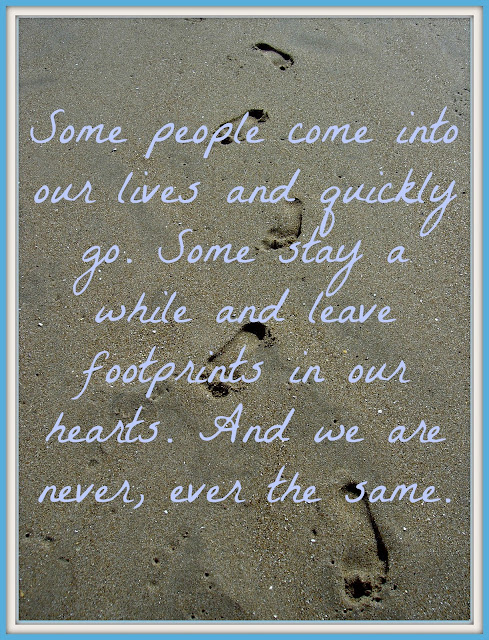 Some people come into
our lives and quickly
go. Some stay a
while and leave
footprints in our
hearts. And we are
never, ever the same.